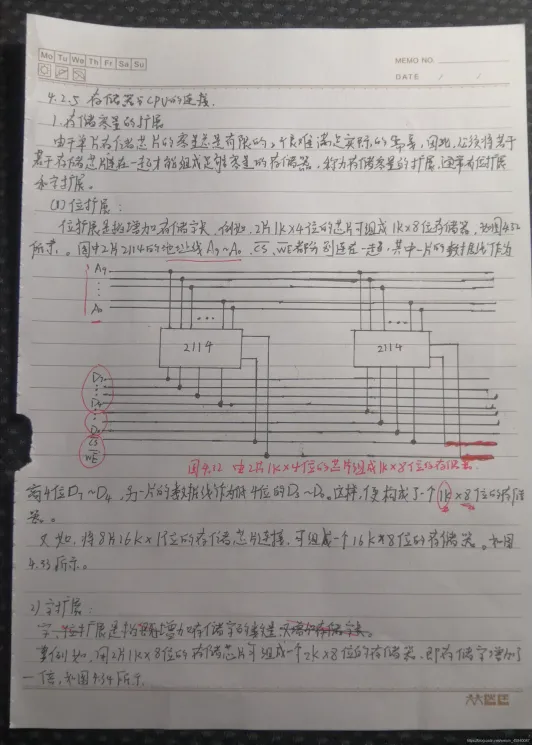 Mo Tu We Th Fr Sa Su
MEMO NO.
DATE / /
4.2.5 存储器与CPU的连接.
1.存储容量的扩展
由于单片存储芯片的容量总是有限的,很难满足实际的需要,因此,必须将若干
若干存储芯片连在一起才能组成足够容量的存储器,称为存储容量的扩展,通常有位扩展
和字扩展。
(1)位扩展:
位扩展是指增加存储字长,例如,2片1K×4位的芯片可组成1K×8位存储器,如图4.32
所示。图中2片2114的地址线A9~A0、CS、WE都分别连在一起,其中一片的数据线作为
A9
A0
2114
2114
D7
D4
D0
CS
WE
图4.32 由2片1K×4位的芯片组成1K×8位的存储器.
高4位D7~D4,另一片的数据线作为低4位的D3~D0。这样,便构成了一个1K×8位的存储
器。
又如,将8片16K×1位的存储芯片连接,可组成一个16K×8位的存储器。如图
4.33所示。
2)字扩展:
字扩展是指增加存储字的数量
例如,用2片1K×8位的存储芯片可组成一个2K×8位的存储器,即存储字增加了
一倍,如图4.34所示.